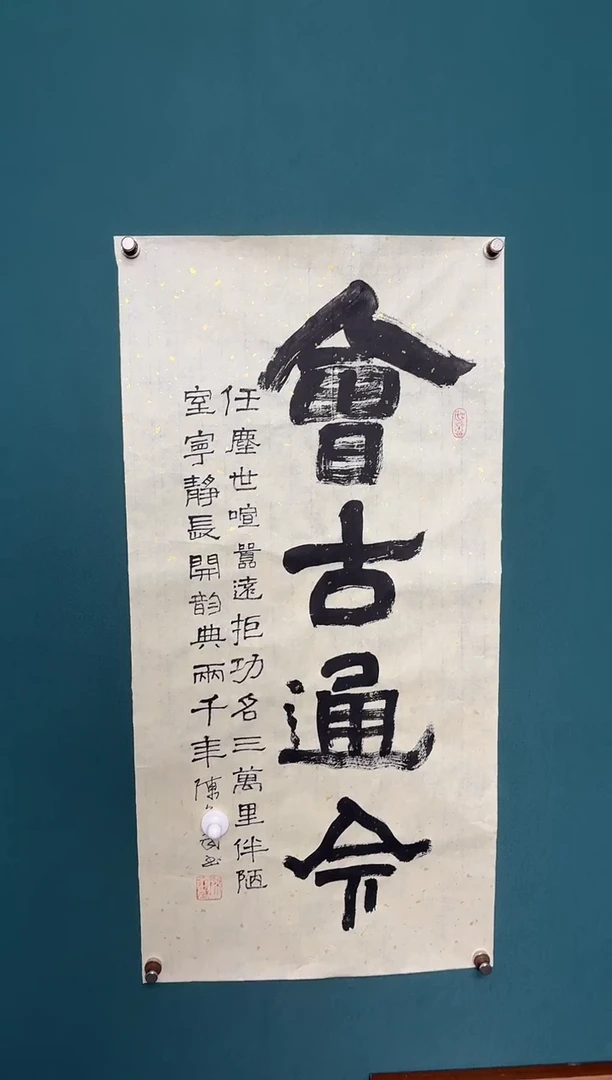 會古通今
任塵世喧囂遠拒功名三萬里伴陋
室寧靜長開韵典兩千年陳